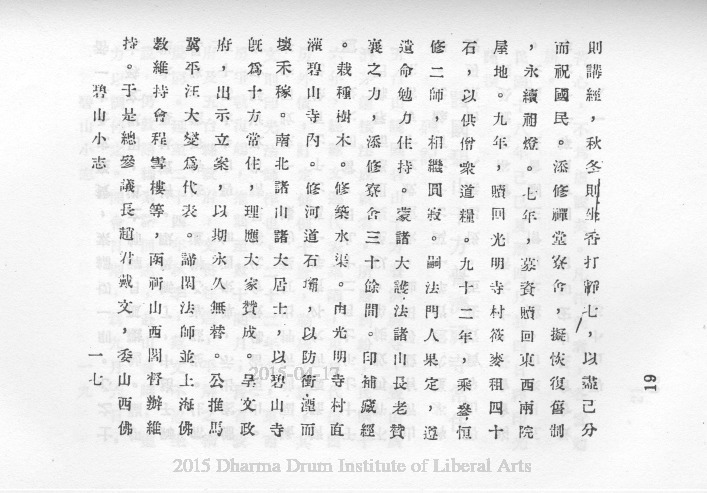 則講經，秋冬則坐香打靜七，以盡己分
而祝國民。添修禪堂寮舍，擬恢復舊制
，永續祖燈。七年，募資贖回東西兩院
屋地。九年，贖回光明寺村莜麥租四十
石，以供僧衆道糧。九十二年，乘參恒
修二師，相繼圓寂。嗣法門人果定，遵
遺命勉力住持。蒙諸大護法諸山長老贊
襄之力，添修寮舍三十餘間。印補藏經
。栽種樹木。修築水渠。由光明寺村直
灌碧山寺內。修河道石壩，以防衝漂而
壞禾稼。南北諸山諸大居士，以碧山寺
旣爲十方常住，理應大家贊成。呈文政
府，出示立案，以期永久無替。公推馬
冀平汪大燮爲代表。諦閑法師並上海佛
教維持會程雪樓等，函祈山西閻督辦維
持。于是總參議長趙君戴文，委山西佛
碧山小志 一七
19
2015-04-17
2015 Dharma Drum Institute of Liberal Arts